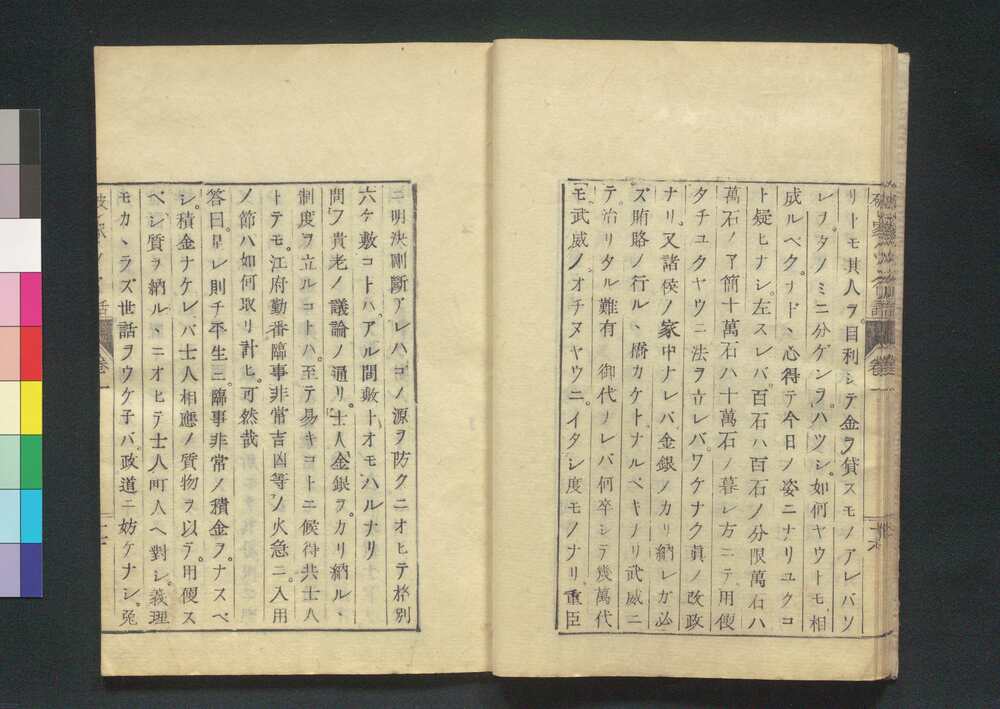 リトモ其人ヲ。目利シテ金ヲ貸スモノアレバソ
レヲ。タノミニ分ゲンヲハツシ。如何ヤウトモ。相
成ルベク。ナド、心得テ今日ノ姿ニナリユクコ
ト疑ヒナシ。左スレバ。百石ハ百石ノ分限萬石ハ
萬石ノ了簡十萬石ハ十萬石ノ暮レ方ニテ。用便
タチユクヤウニ法ヲ立レバ。ワケナク眞ノ改政
ナリ。又諸侯ノ家中ナレバ金銀ノカリ納レガ必
ズ賄賂ノ行ル、橋カケトナルベキナリ武威ニ
テ。治リタル難有 御代ナレバ何卒シテ幾萬代
モ武威ノオチヌヤウニ。イタシ度モノナリ。重臣
ニ明決剛斷アレハ。コノ源ヲ防クニオヒテ格別
六ケ敷コトハ。アル間敷トオモハルナリ
問フ貴老ノ議論ノ通リ。士人金銀ヲ。カリ納ル、
制度ヲ立ルコトハ。至テ易キコトニ候得共士人
トテモ。江府勤番臨事非常吉凶等ノ火急ニ。入用
ノ節ハ如何取リ計ヒ。可然哉
答曰。是レ則チ平生ニ。臨事非常ノ積金ヲ。ナスベ
シ。積金ナケレバ士人相應ノ質物ヲ以テ。用便ス
ベシ質ヲ納ル、ニオヒテ士人町人ヘ對シ。義理
モカ、ラズ世話ヲウケ子バ政道ニ妨ケナシ。兎
卷一
十六